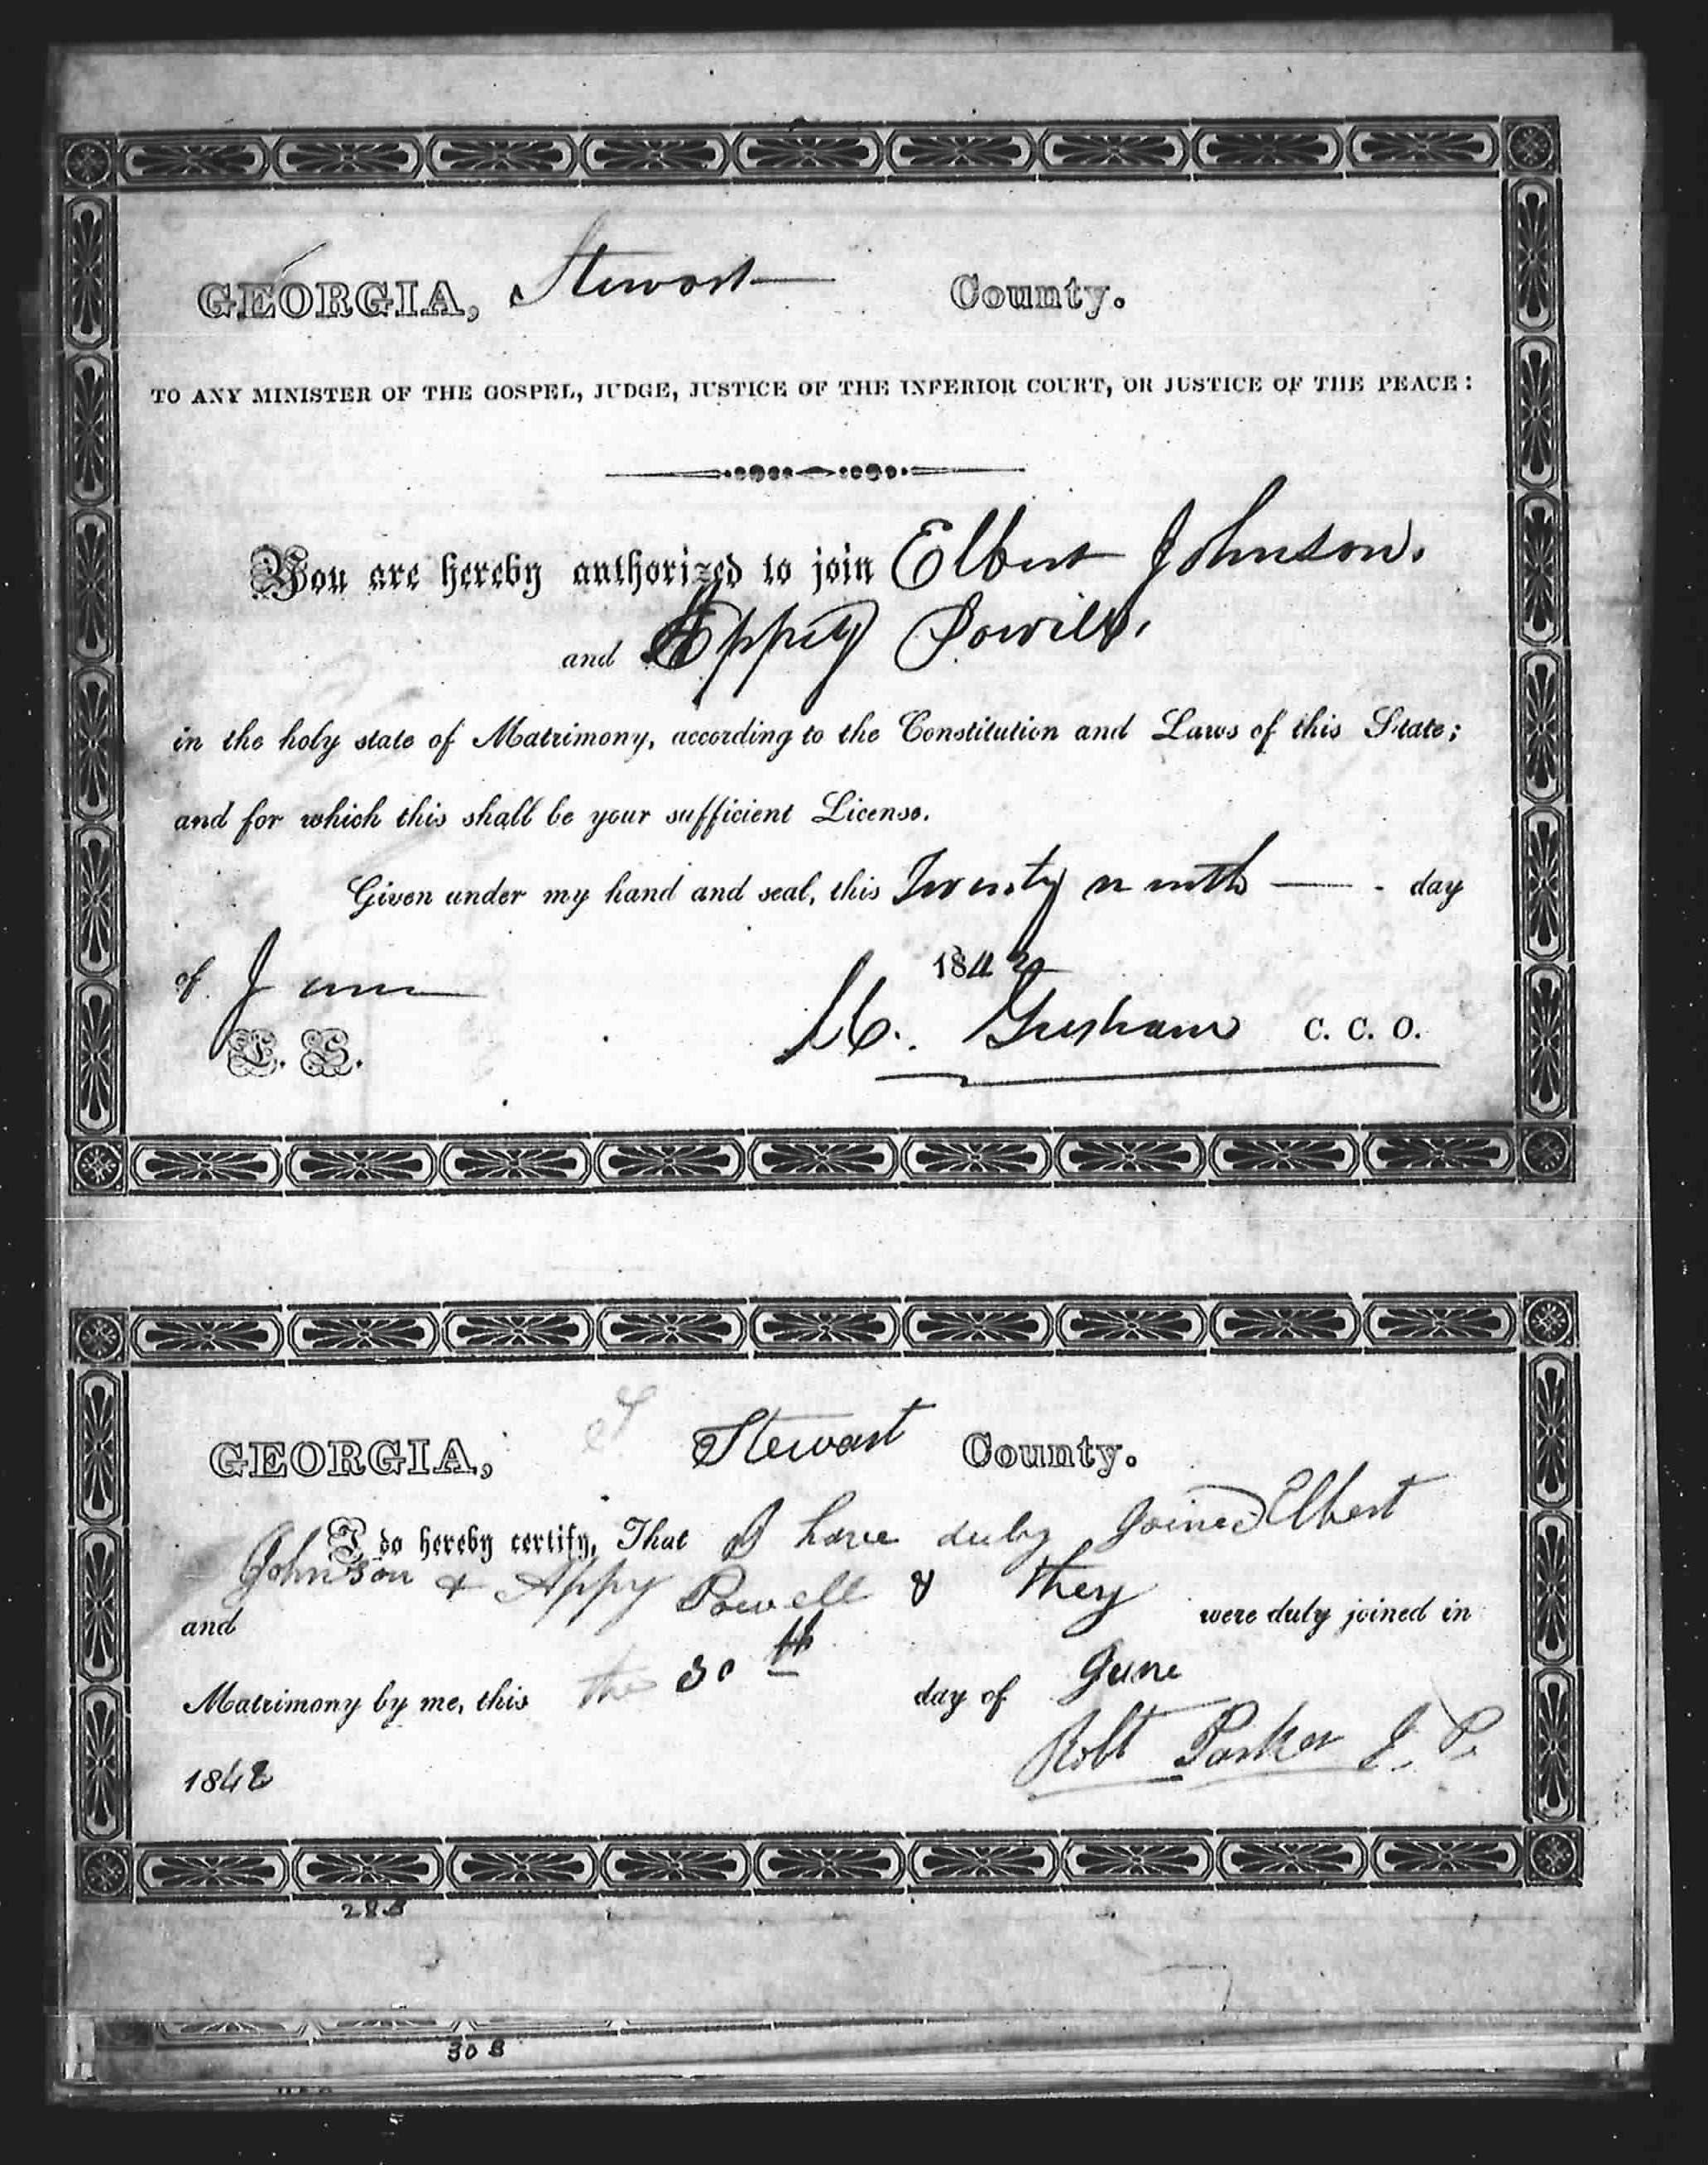 GEORGIA, Stewart County.
TO ANY MINISTER OF THE GOSPEL, JUDGE, JUSTICE OF THE INFERIOR COURT, OR JUSTICE OF THE PEACE:
You are hereby authorized to join Elbert Johnson.
and Eppey Powill.
in the holy state of Matrimony, according to the Constitution and Laws of this State;
and for which this shall be your sufficient License.
Given under my hand and seal, this Twenty ninth — day
of June 1842
L. S. M. Gresham C. C. O.
GEORGIA, Stewart County.
I do hereby certify, That I have duly joined Elbert
Johnson & Appy Powell & they
and were duly joined in
Matrimony by me, this the 30th day of June
1842 Robt Parker J. P.
288
308